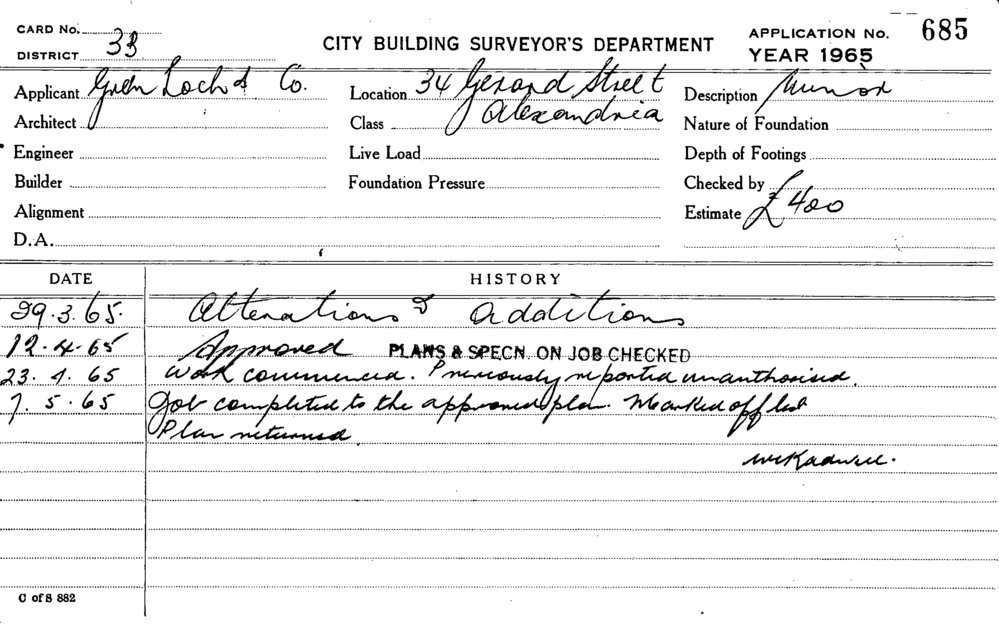 CARD No.
685
APPLICATION No.
DISTRICT 33
CITY BUILDING SURVEYOR'S DEPARTMENT
YEAR 1965
Applicant Loch & Co.
Location 34 Gerard Street
Alexandria
Description Minor
Architect
Class
Nature of Foundation
Engineer
Live Load
Depth of Footings
Builder
Foundation Pressure
Checked by
Alignment
Estimate £400
D.A.
DATE
HISTORY
29.3.65. Alterations & additions
12.4.65 Approved PLANS & SPECN. ON JOB CHECKED
23.4.65 Work commenced. Previously reported unauthorised.
7.5.65 Job completed to the approved plan. Marked off list
Plan returned.
C of S 882